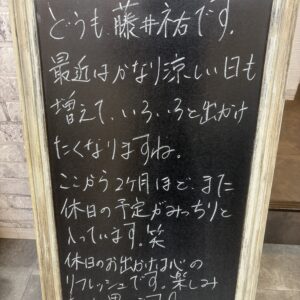 どうも藤井祐です。
最近はかなり涼しい日も
増えて、いろいろと出かけ
たくなりますね。
ここから2ヶ月ほど、また
休日の予定がみっちりと
入っています。笑
休日のお出かけは心の
リフレッシュです。楽しみ